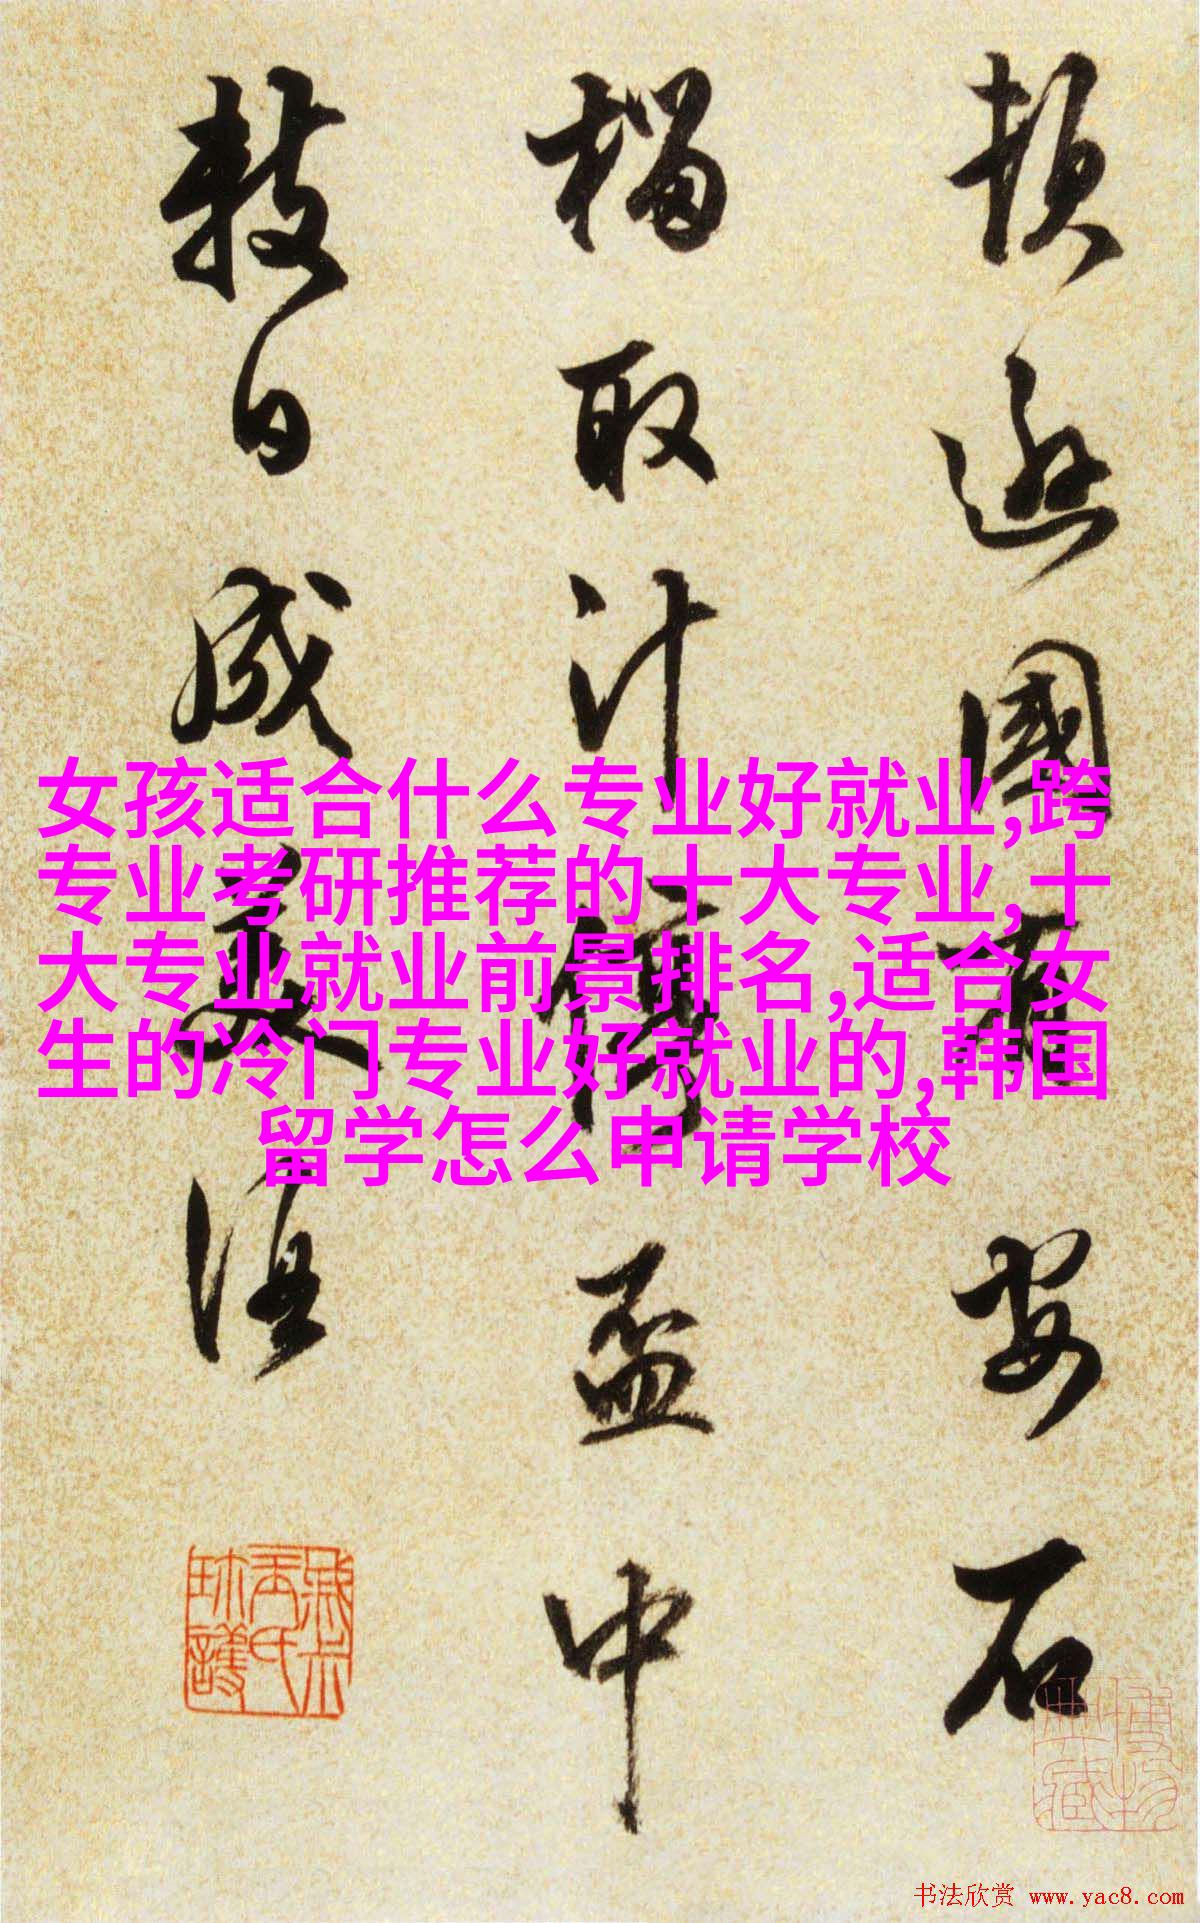 頓遜國有安石
榴取汁停盃中
數日成美酒
女孩适合什么专业好就业,跨
专业考研推荐的十大专业,十
大专业就业前景排名,适合女
生的冷门专业好就业的,韩国
留学怎么申请学校
书法欣赏 www.yac8.com